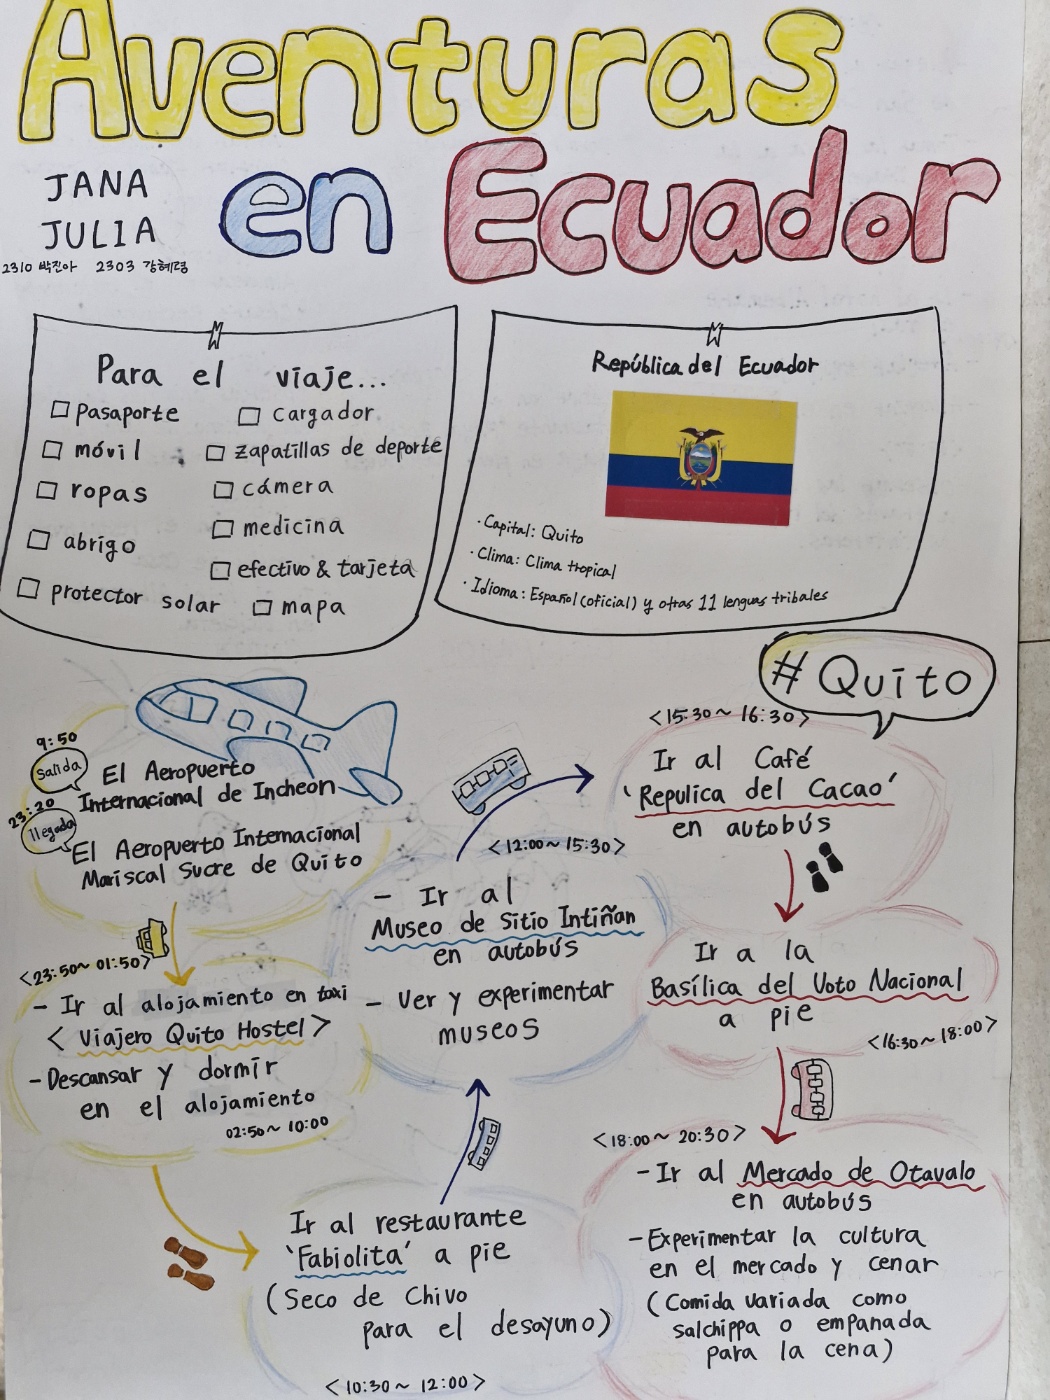 Aventuras
en Ecuador
JANA
JULIA
2310 박진아 2303 강혜령
Para el viaje...
pasaporte
móvil
ropas
abrigo
protector solar
cargador
zapatillas de deporte
cámera
medicina
efectivo & tarjeta
mapa
República del Ecuador
· Capital: Quito
· Clima: Clima tropical
· Idioma: Español (oficial) y otras 11 lenguas tribales
#Quito
9:50
Salida
El Aeropuerto
Internacional de Incheon
23:20
llegada
El Aeropuerto Internacional
Mariscal Sucre de Quito
<23:50~01:50>
- Ir al alojamiento en taxi
< Viajero Quito Hostel >
- Descansar y dormir
en el alojamiento
02:50~10:00
Ir al restaurante
'Fabiolita' a pie
(Seco de Chivo
para el desayuno)
<10:30~12:00>
<12:00~15:30>
- Ir al
Museo de Sitio Intiñan
en autobús
- Ver y experimentar
museos
<15:30~16:30>
Ir al Café
'Repulica del Cacao'
en autobús
Ir a la
Basílica del Voto Nacional
a pie
<16:30~18:00>
<18:00~20:30>
- Ir al Mercado de Otavalo
en autobús
- Experimentar la cultura
en el mercado y cenar
(Comida variada como
salchippa o empanada
para la cena)